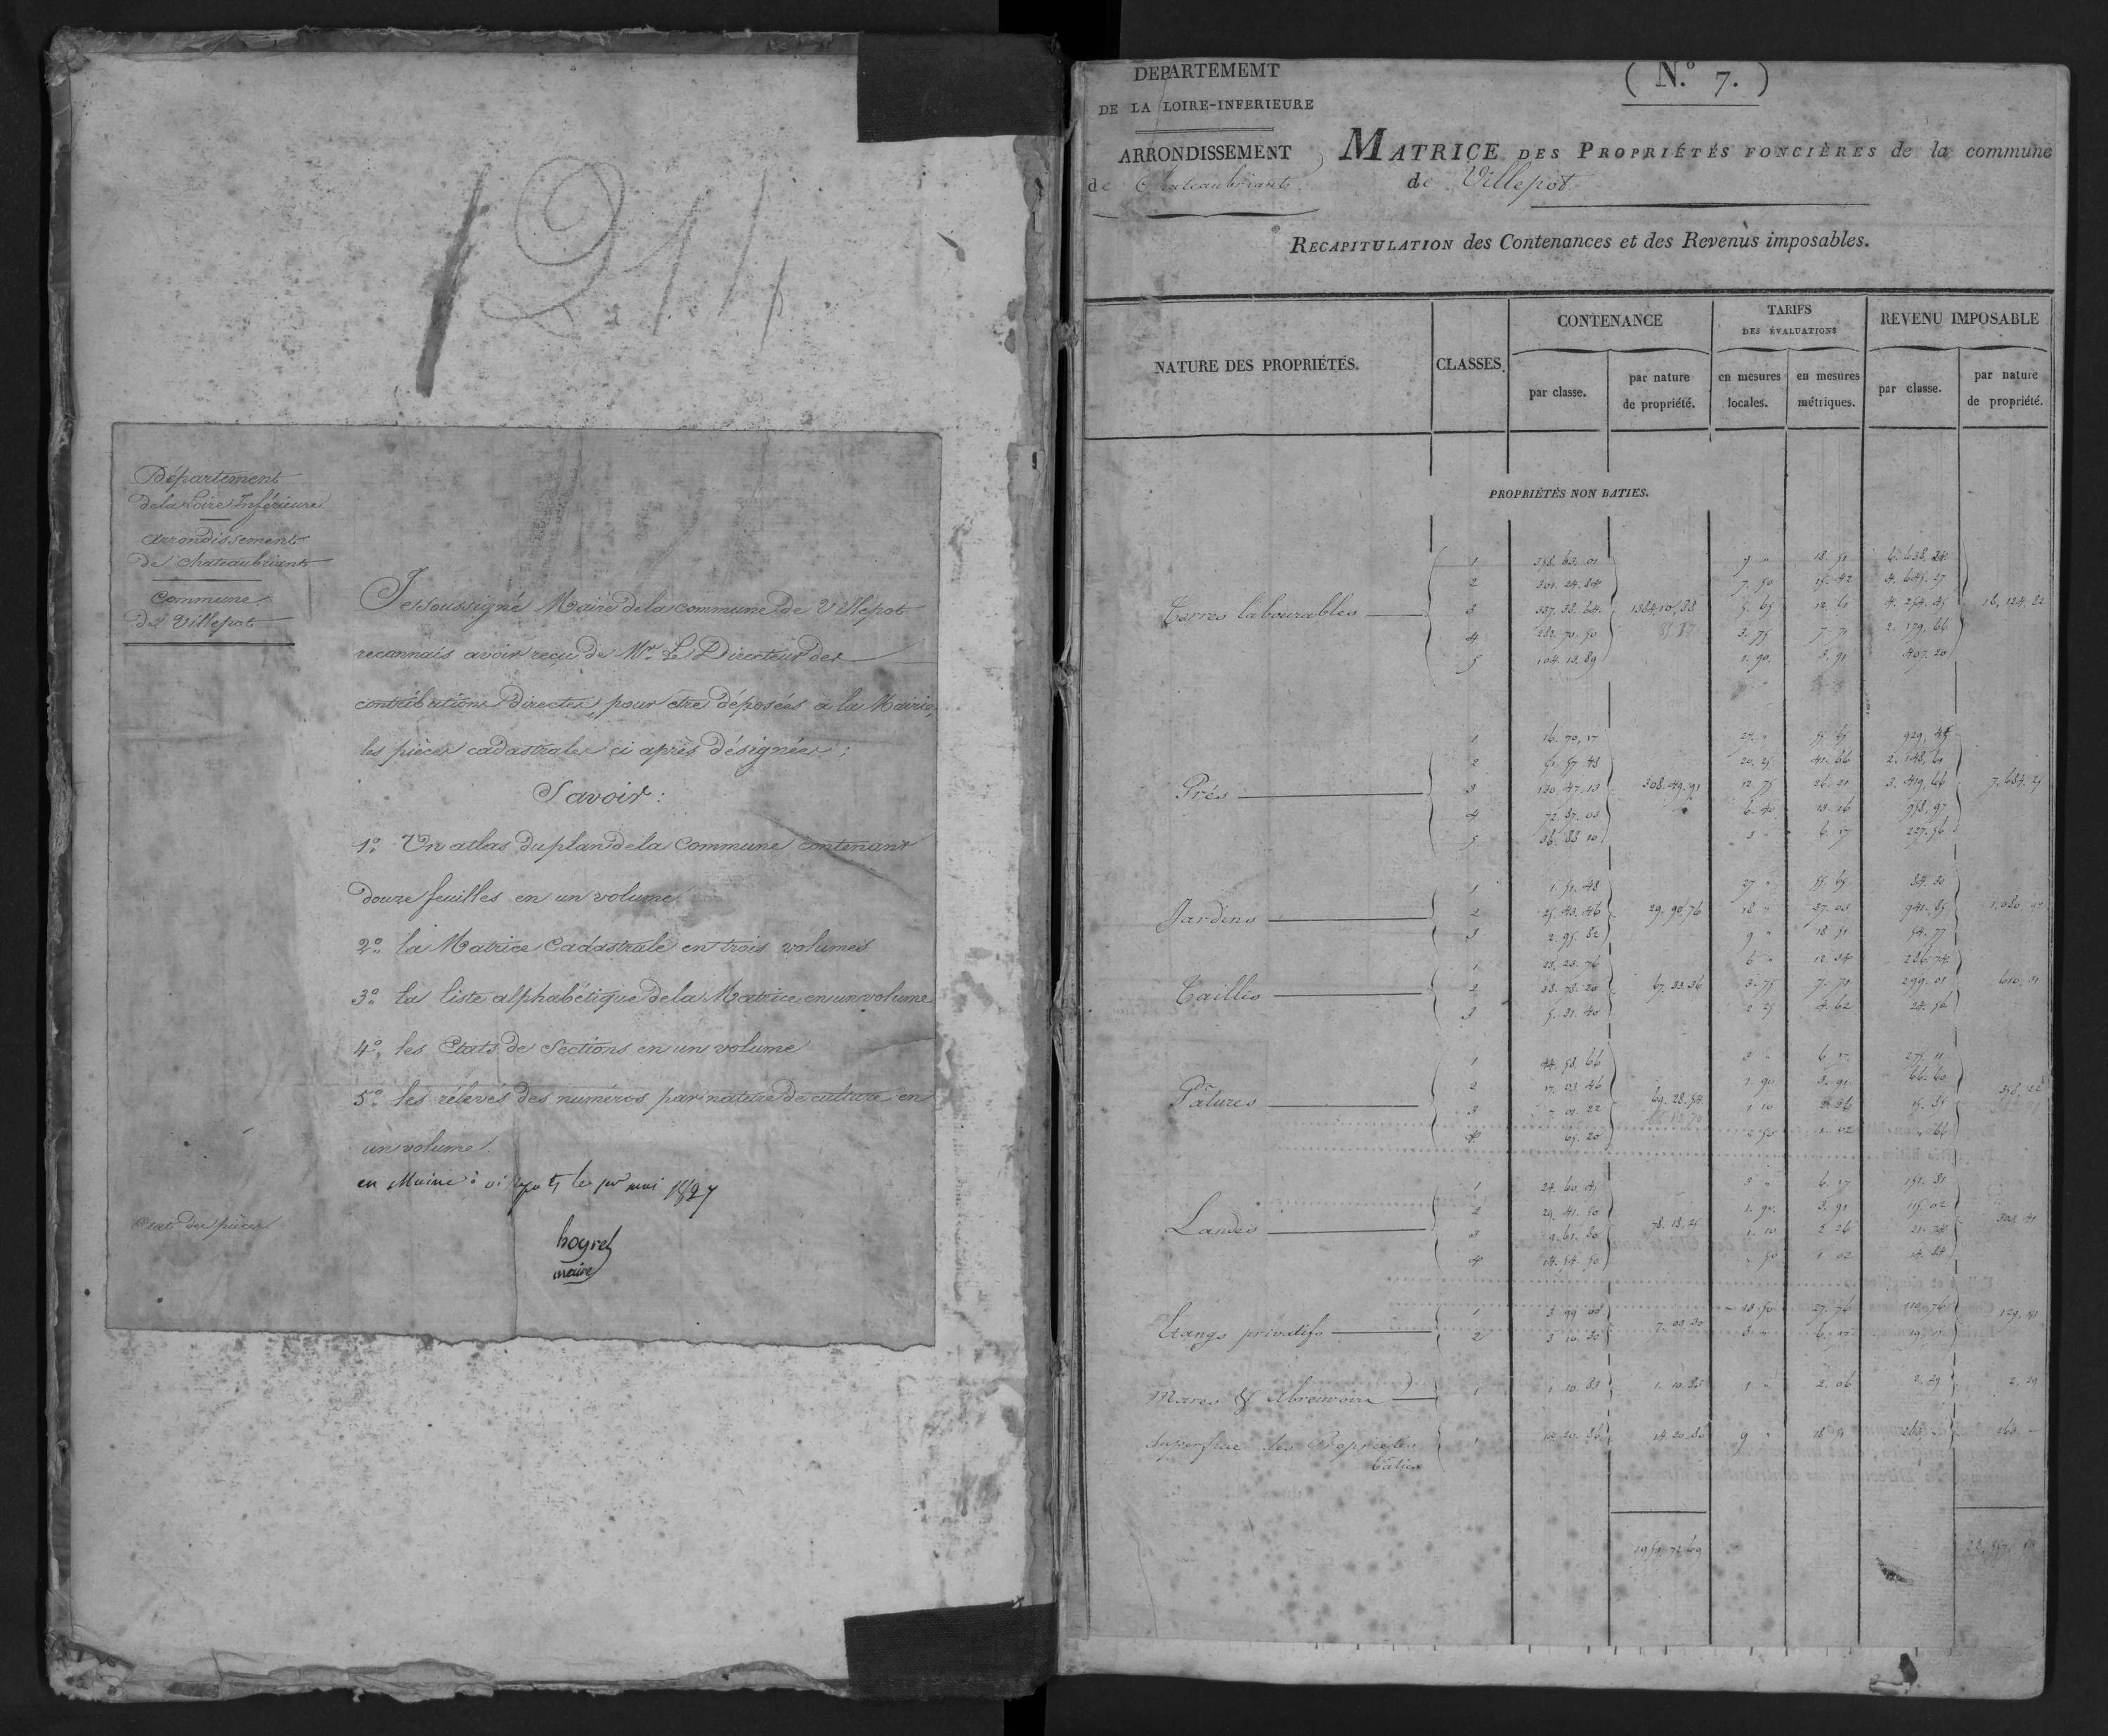 1914
Département
de la Loire Inférieure
Arrondissement
de Chateaubriant
Commune
de Villepot
Je soussigné Maire de la commune de Villepot
reconnais avoir reçu de Mr. Le Directeur des
contributions Directes, pour être déposées à la Mairie,
les pièces cadastrales ci après désignées ;
Savoir :
1° Un atlas du plan de la Commune contenant
douze feuilles en un volume
2° la Matrice Cadastrale en trois volumes
3° la liste alphabétique de la Matrice en un volume
4° les Etats de Sections en un volume
5° les rélevés des numéros par nature de culture en
un volume.
en Mairie à le 1er mai 1827
Etat des pièces
maire
DEPARTEMEMT
DE LA LOIRE-INFERIEURE
ARRONDISSEMENT
de Chateaubriant
( N.° 7. )
MATRICE DES PROPRIÉTÉS FONCIÈRES de la commune
de Villepot
RECAPITULATION des Contenances et des Revenus imposables.
NATURE DES PROPRIÉTÉS. CLASSES. CONTENANCE TARIFS DES ÉVALUATIONS REVENU IMPOSABLE
par classe. par nature de propriété. en mesures locales. en mesures métriques. par classe. par nature de propriété.
PROPRIÉTÉS NON BATIES.
Terres labourables
1 358. 63. 01 9 " 18. 51 6. 638. 24
2 301. 24. 84 7. 50 15. 42 4. 645. 27
3 337. 38. 64 1384. 10. 88 5. 65 12. 61 4. 254. 45 18, 124. 82
4 282. 70. 50 3. 75 7. 71 2. 179, 66
5 104. 13. 89 1. 90. 3. 91 407. 20
Prés
1 16. 70, 17 27. " 55. 65 929, 45
2 51. 57. 48 20. 25 41. 66 2. 148, 61
3 130. 47. 13 308. 49. 91 12 75 26. 21 3. 419, 66 7. 684. 25
4 72. 87. 03 6. 40 13. 16 958, 97
5 36. 88 10 3 " 6. 17 227. 56
Jardins
1 1. 51. 48 27 " 55. 65 84. 30
2 25. 43. 46 29. 90, 76 18 " 37. 03 941. 85 1,080, 92
3 2. 95. 82 9 " 18 51 54. 77
Taillis
1 23, 23. 76 6 " 12. 34 286. 74
2 38. 78. 20 67. 33. 36 3. 75 7. 71 299. 01 610, 31
3 5. 31. 40 2 25 4. 62 24. 56
Pâtures
1 44. 58. 66 3 " 6 17 275. 11
2 17. 03. 46 69. 28. 54 1. 90 3. 91 66. 60 358, 22
3 7 01. 22 1 10 2. 26 15. 85
4 65. 20 " 50 1. 02 " 66
Landes
1 24. 60. 45 3 " 6. 17 151. 81
2 29. 41. 50 78. 18. 25 1. 90. 3. 91 115. 02 303 41
3 9. 61. 80 1. 10 2 26 21. 74
4 14. 54. 50 " 50 1 02 14. 84
Etangs privatifs
1 3 99 00 13. 50 27. 76 110. 76 129, 91
2 3 10. 30 7. 09 30 3. " 6. 17 19 15
Mares & Abreuvoirs 1 1 10. 85 1. 10. 85 1 " 2. 06 2. 29 2. 29
Superficie des Propriétés bâties 1 14. 20. 86 14 20. 86 9 " 18 51 263. " 263. "
1959, 72, 69